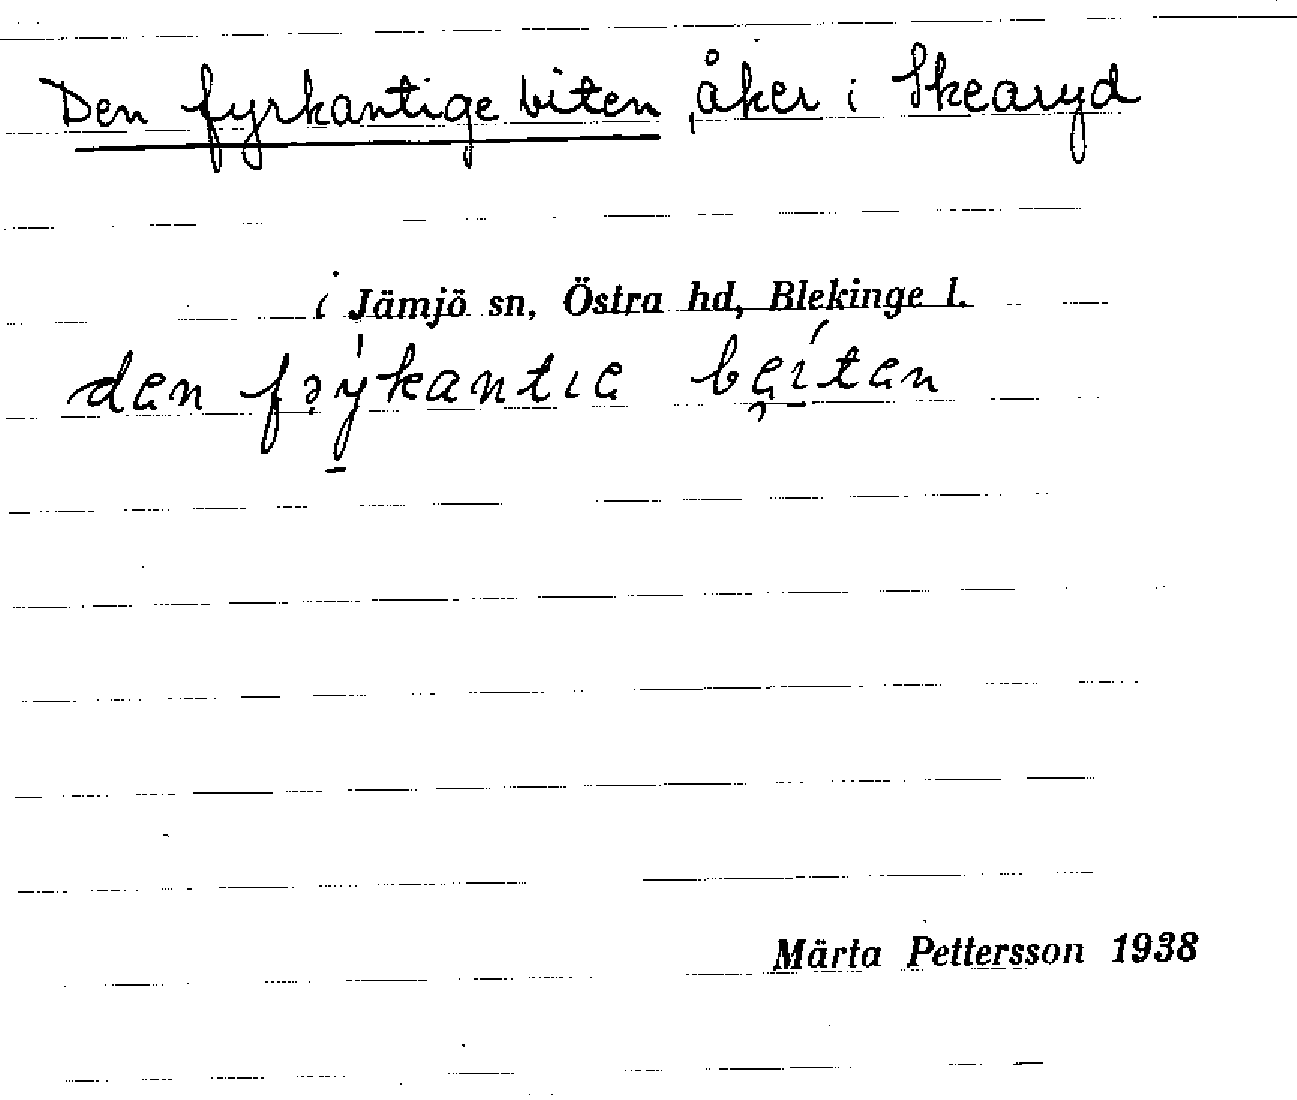 Den fyrkantige biten, åker i Skearyd
i Jämjö sn, Östra hd, Blekinge l.
den fəý̲kantıe be̜í̲ten
Märta Pettersson 1938